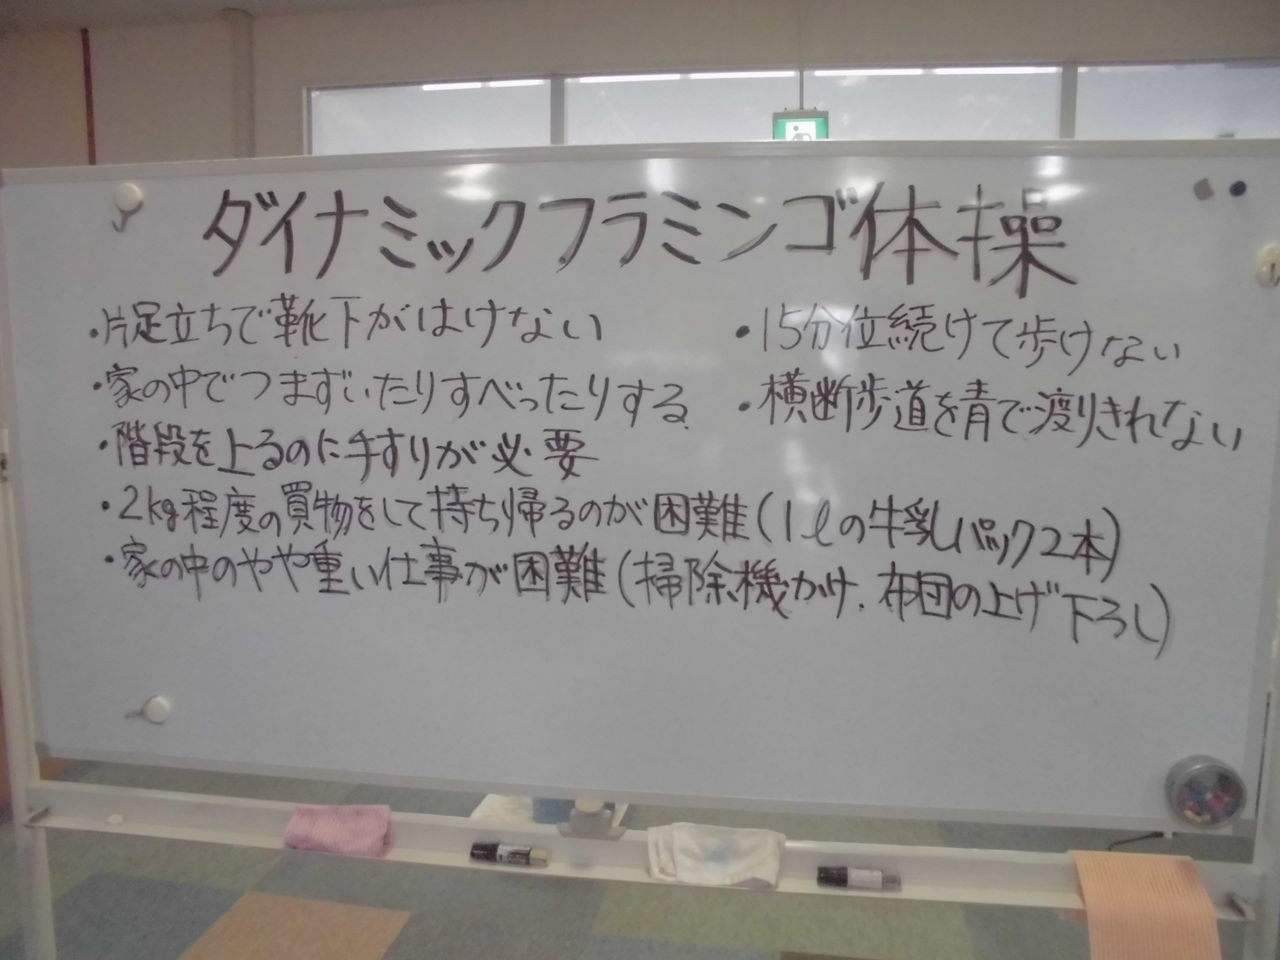 ダイナミックフラミンゴ体操
・片足立ちで靴下がはけない
・家の中でつまずいたりすべったりする
・階段を上るのに手すりが必要
・2kg程度の買物をして持ち帰るのが困難(1ℓの牛乳パック2本)
・家の中のやや重い仕事が困難(掃除機かけ、布団の上げ下ろし)
・15分位続けて歩けない
・横断歩道を青で渡りきれない